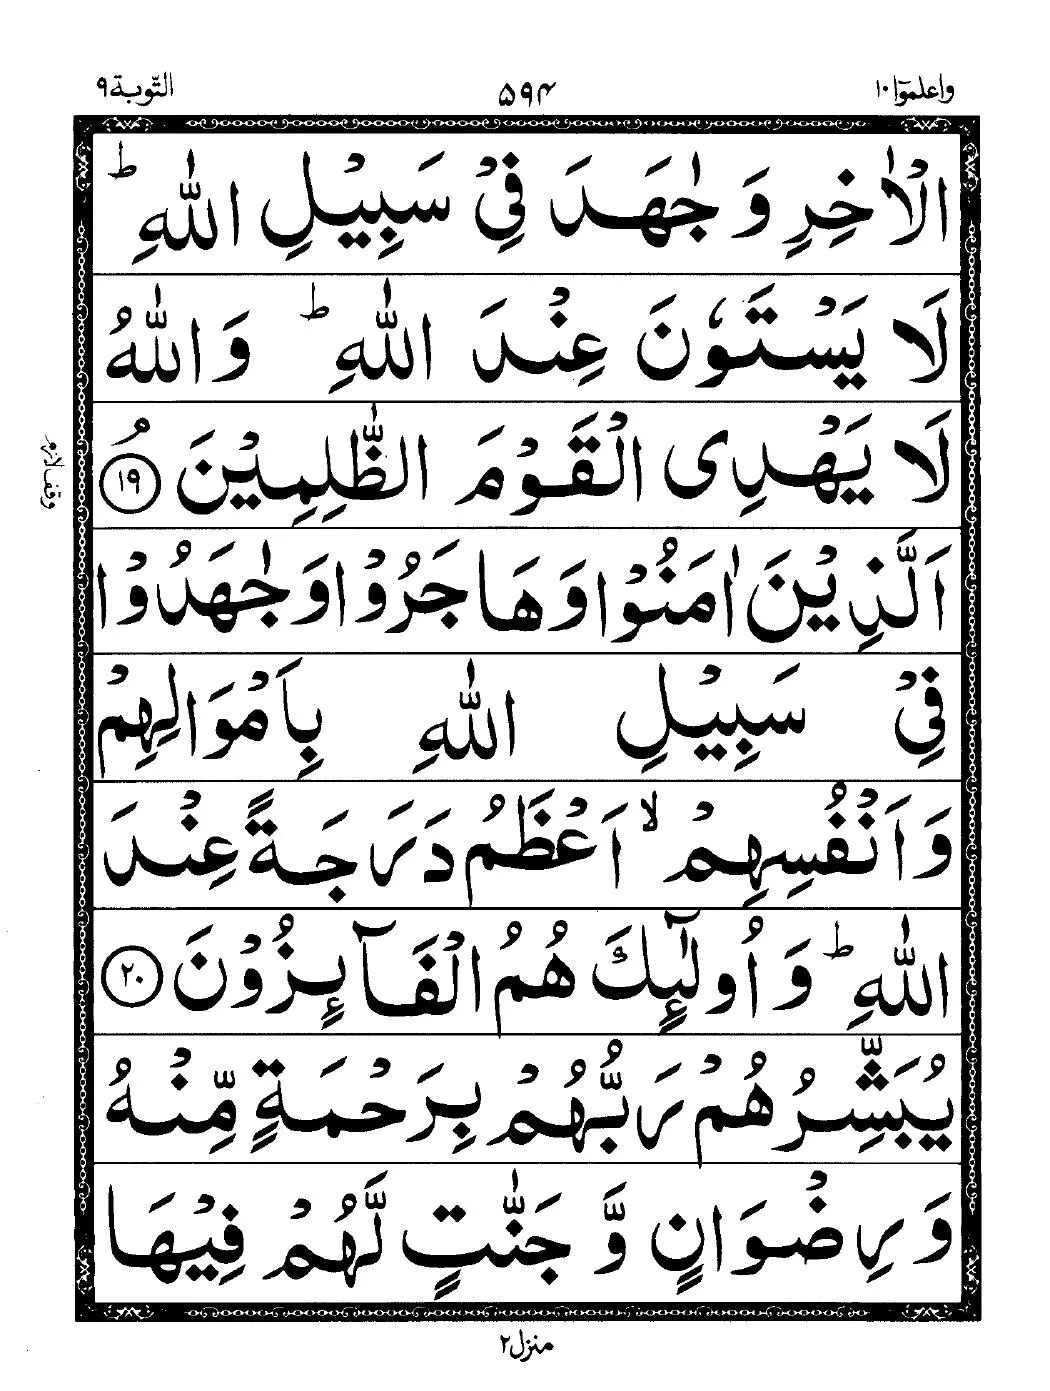 واعلموٓا۱۰ ۵۹۴ التّوبة۹
الْاٰخِرِ وَ جٰهَدَ فِیْ سَبِیْلِ اللّٰهِ ؕ
لَا یَسْتَوٗنَ عِنْدَ اللّٰهِ ؕ وَ اللّٰهُ
لَا یَهْدِی الْقَوْمَ الظّٰلِمِیْنَ ۘ ۱۹
وقف لازم
اَلَّذِیْنَ اٰمَنُوْا وَ هَاجَرُوْا وَ جٰهَدُوْا
فِیْ سَبِیْلِ اللّٰهِ بِاَمْوَالِهِمْ
وَ اَنْفُسِهِمْ ۙ اَعْظَمُ دَرَجَةً عِنْدَ
اللّٰهِ ؕ وَ اُولٰٓىِٕكَ هُمُ الْفَآىِٕزُوْنَ ۲۰
یُبَشِّرُهُمْ رَبُّهُمْ بِرَحْمَةٍ مِّنْهُ
وَ رِضْوَانٍ وَّ جَنّٰتٍ لَّهُمْ فِیْهَا
منزل۲